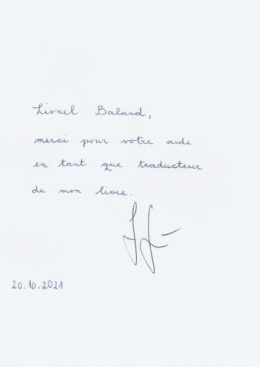 Lionel Baland,
merci pour votre aide
en tant que traducteur
de mon livre.
20.10.2021